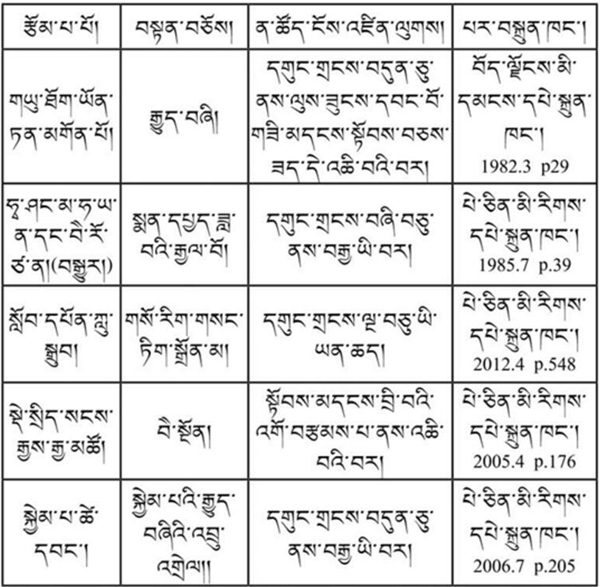 རྩོམ་པ་པོ།
བསྟན་བཅོས།
ན་ཚོད་ངོས་འཛིན་ལུགས།
པར་བསྐྲུན་ཁང་།
གཡུ་ཐོག་ཡོན་
ཏན་མགོན་པོ།
རྒྱུད་བཞི།
དགུང་གྲངས་བདུན་ཅུ་
ནས་ལུས་ཟུངས་དབང་བོ་
གཟི་མདངས་སྟོབས་བཅས་
ཟད་དེ་འཆི་བའི་བར།
བོད་ལྗོངས་མི་
དམངས་དཔེ་སྐྲུན་
ཁང་།
1982.3 p29
ཧྭ་ཤང་མ་ཧཱ་ཡ་
ན་དང་བཻ་རོ་
ཙ་ན།(བསྒྱུར།)
སྨན་དཔྱད་ཟླ་
བའི་རྒྱལ་པོ།
དགུང་གྲངས་བཞི་བཅུ་
ནས་བརྒྱ་ཡི་བར།
པེ་ཅིན་མི་རིགས་
དཔེ་སྐྲུན་ཁང་།
1985.7 p.39
སློབ་དཔོན་ཀླུ་
སྒྲུབ།
གསོ་རིག་གསང་
ཏིག་སྒྲོན་མ།
དགུང་གྲངས་ལྔ་བཅུ་ཡི་
ཡན་ཆད།
པེ་ཅིན་མི་རིགས་
དཔེ་སྐྲུན་ཁང་།
2012.4 p.548
སྡེ་སྲིད་སངས་
རྒྱས་རྒྱ་མཚོ།
བཻ་སྔོན།
སྟོབས་མདངས་བྲི་བའི་
འགོ་བརྩམས་པ་ནས་འཆི་
བའི་བར།
པེ་ཅིན་མི་རིགས་
དཔེ་སྐྲུན་ཁང་།
2005.4 p.176
སྐྱེམ་པ་ཚེ་
དབང་།
སྐྱེམ་པའི་རྒྱུད་
བཞིའི་འབྲུ་
འགྲེལ།།
དགུང་གྲངས་བདུན་ཅུ་
ནས་བརྒྱ་ཡི་བར།
པེ་ཅིན་མི་རིགས་
དཔེ་སྐྲུན་ཁང་།
2006.7 p.205